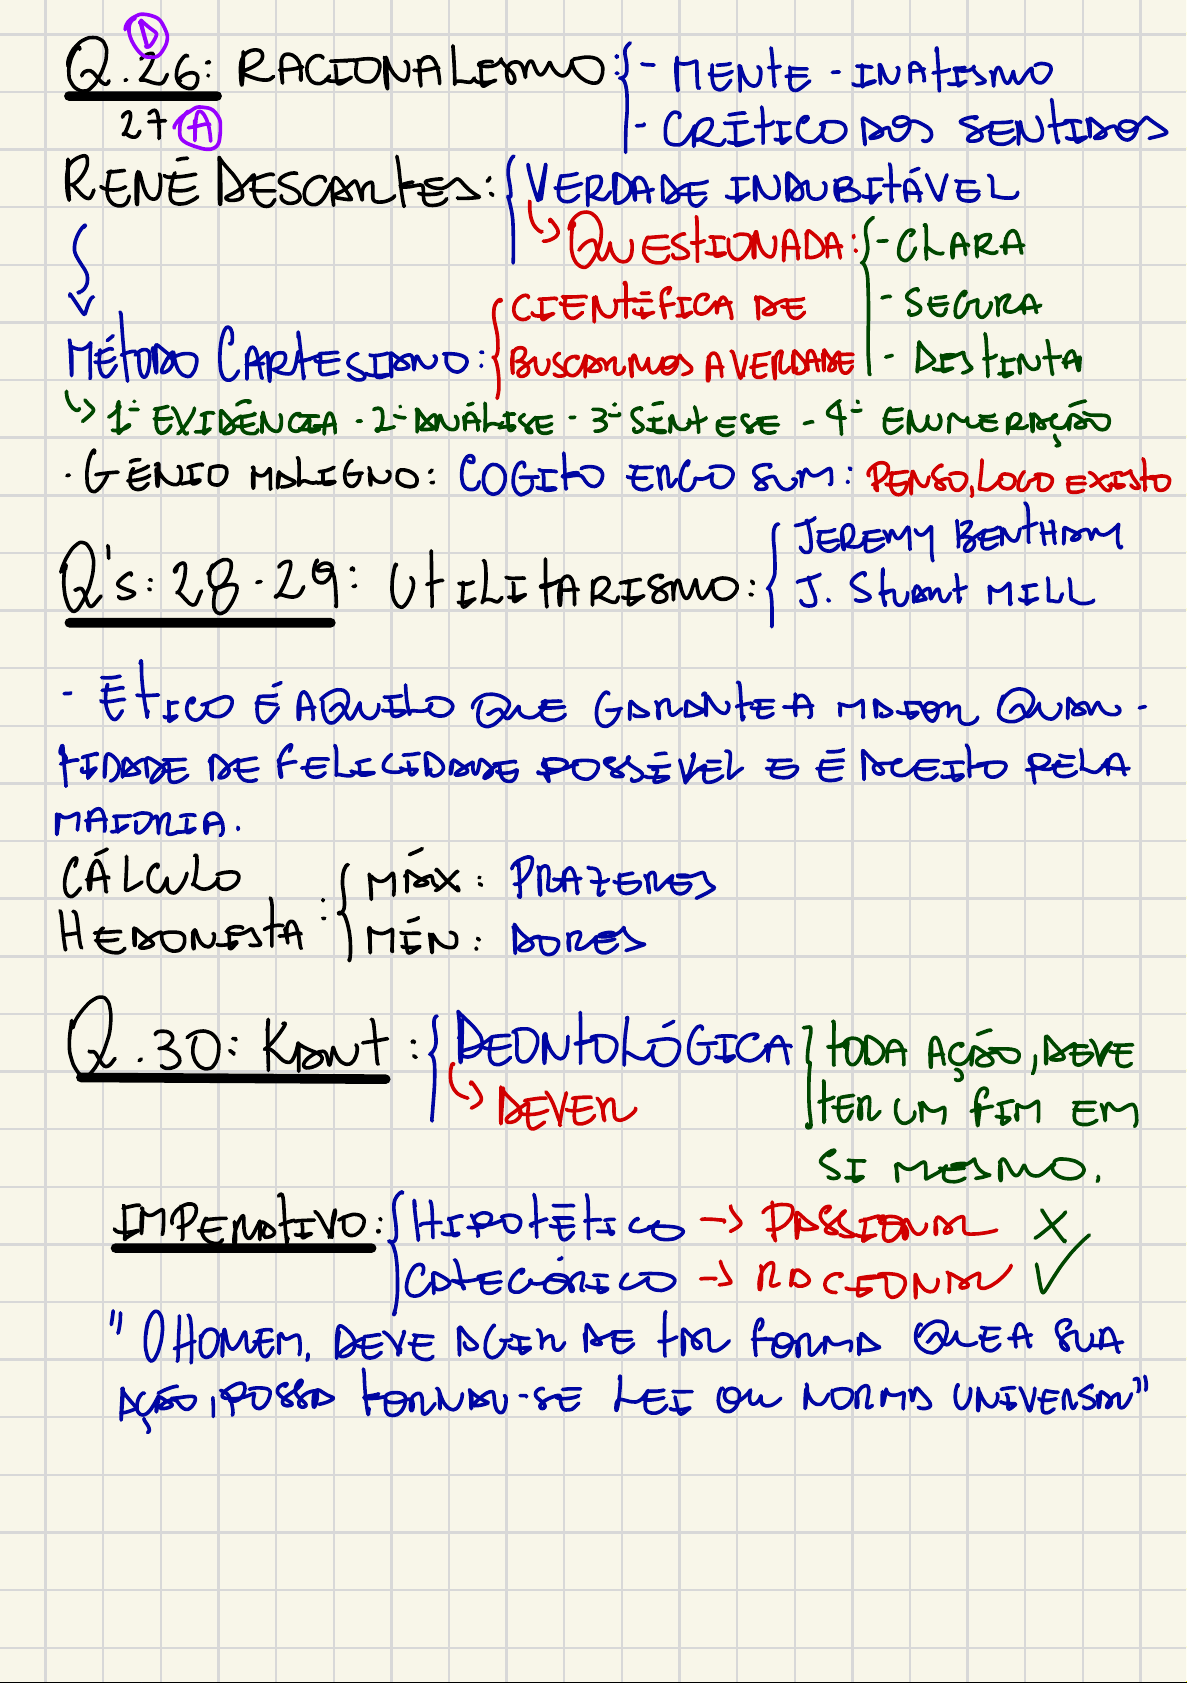 D
Q.26: RACIONALISMO: - MENTE - INATISMO
27 A - CRÍTICO DOS SENTIDOS
RENÉ DESCARTES: VERDADE INDUBITÁVEL
↳ QUESTIONADA: - CLARA
CIENTÍFICA DE - SEGURA
MÉTODO CARTESIANO: BUSCARMOS A VERDADE - DISTINTA
↳ 1º EVIDÊNCIA - 2º ANÁLISE - 3º SÍNTESE - 4º ENUMERAÇÃO
· GÊNIO MALIGNO: COGITO ERGO SUM: PENSO, LOGO EXISTO
JEREMY BENTHAM
Q's: 28-29: UTILITARISMO: J. Stuart MILL
- ÉTICO É AQUILO QUE GARANTE A MAIOR QUAN-
TIDADE DE FELICIDADE POSSÍVEL E É ACEITO PELA
MAIORIA.
CÁLCULO MÁX: PRAZERES
HEDONISTA: MÍN: DORES
Q.30: Kant: DEONTOLÓGICA TODA AÇÃO, DEVE
↳ DEVER TER UM FIM EM
SI MESMO.
IMPERATIVO: HIPOTÉTICO → PASSIONAL X
CATEGÓRICO → RACIONAL ✓
"O HOMEM, DEVE AGIR DE TAL FORMA QUE A SUA
AÇÃO, POSSA TORNAR-SE LEI OU NORMA UNIVERSAL"